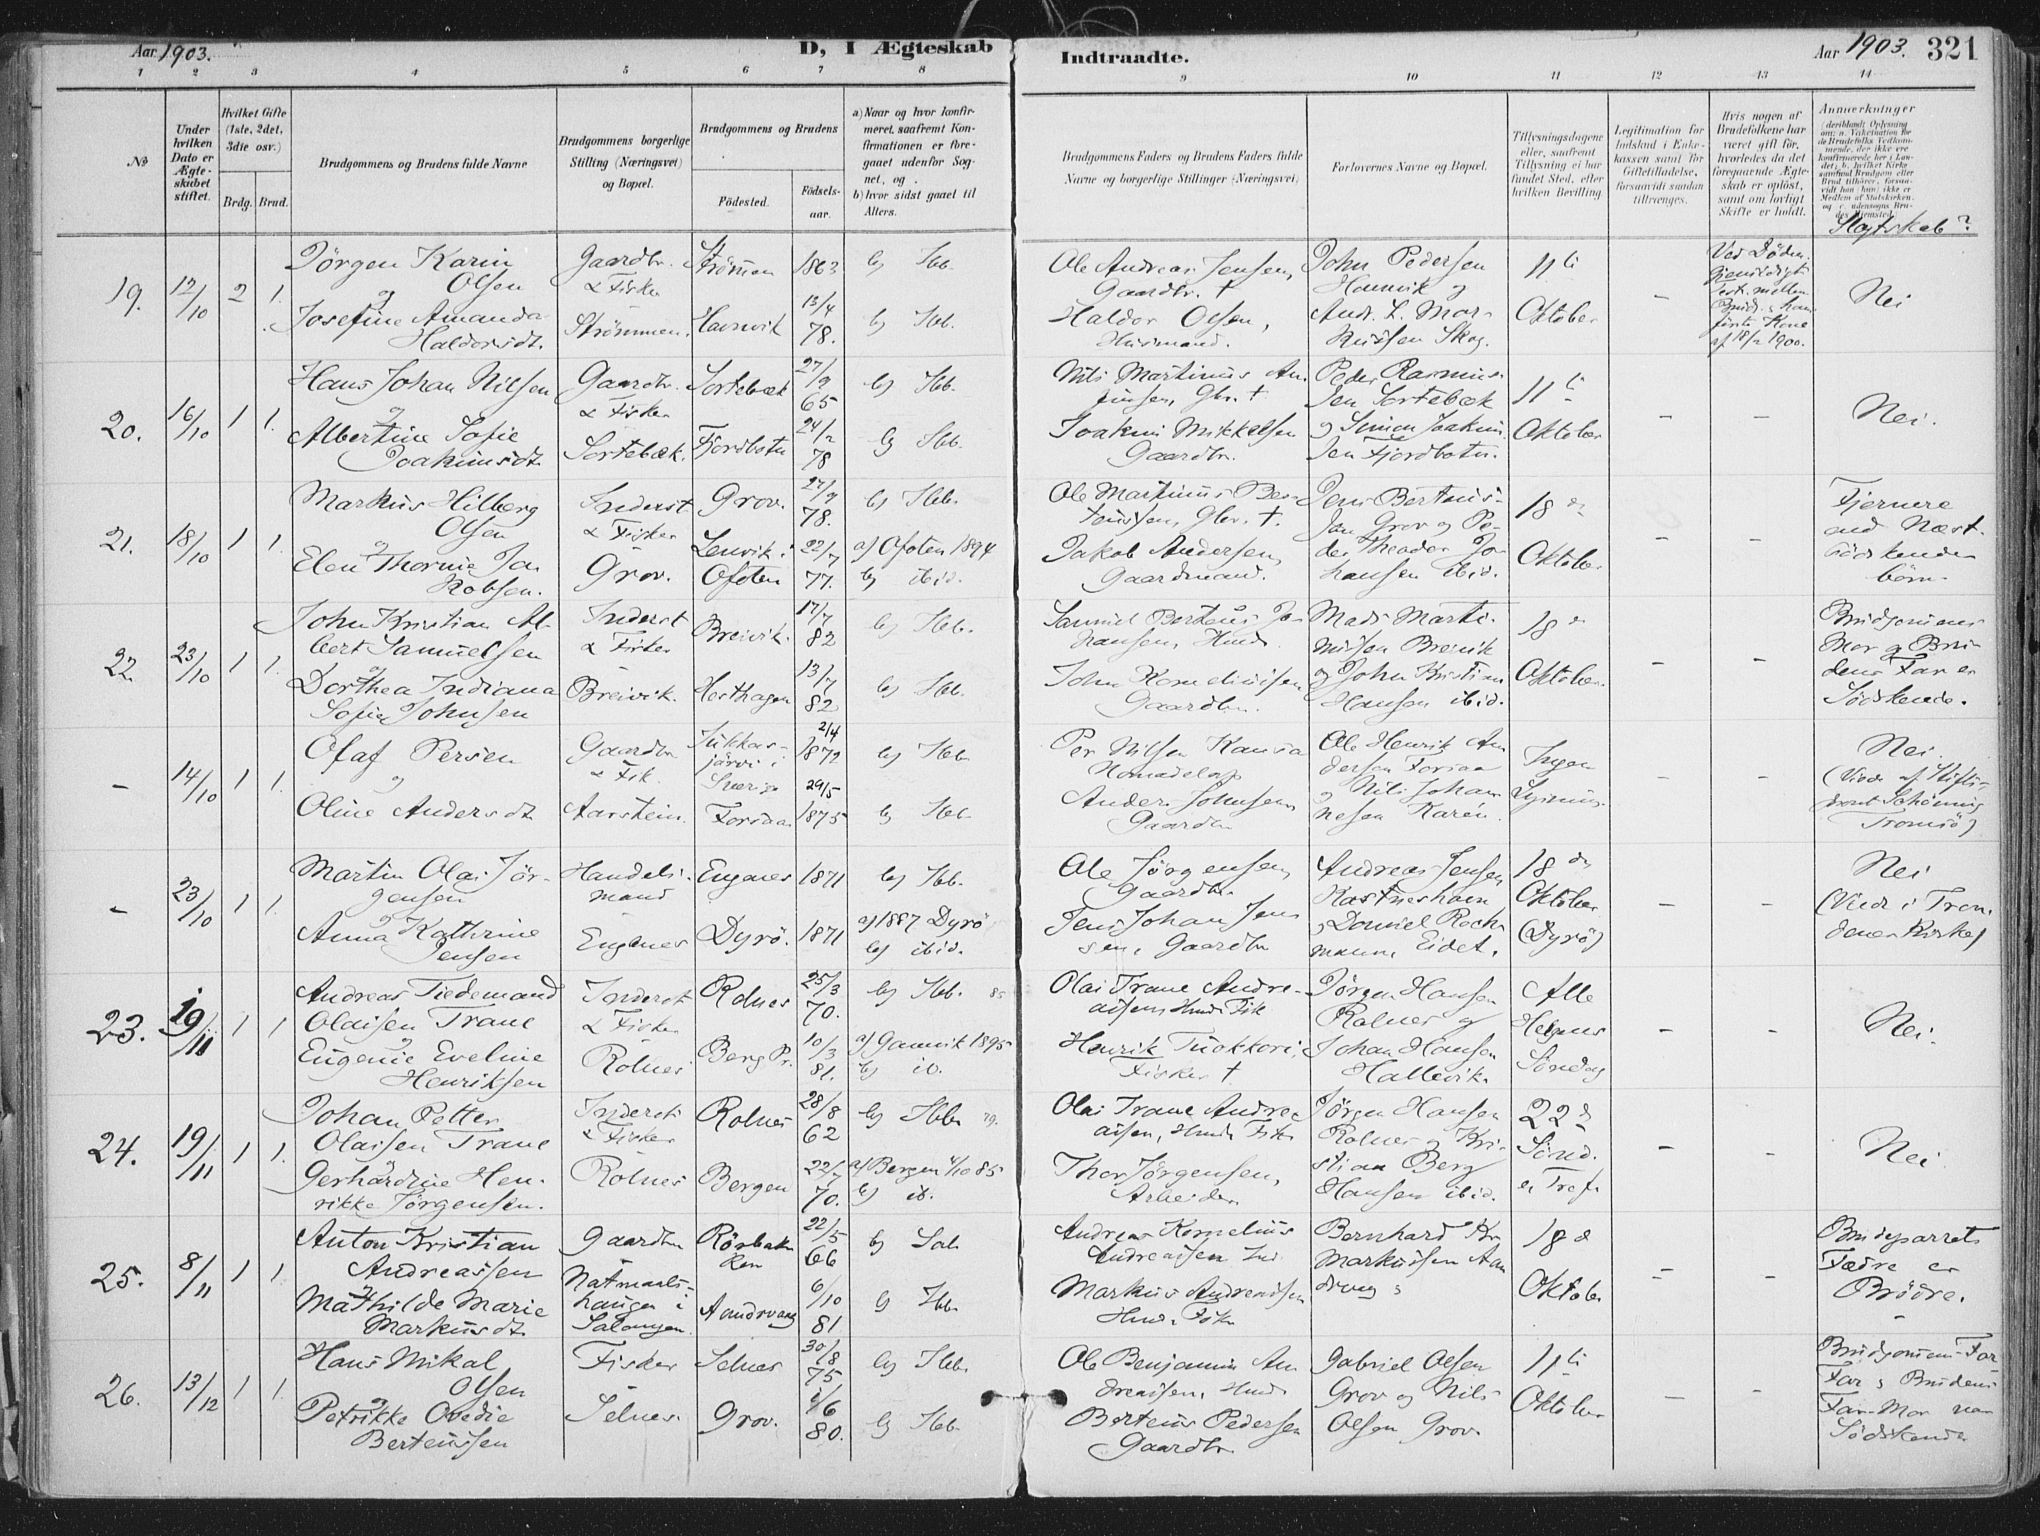 Aar 1903.
D, I Ægteskab
Indtraadte.
Aar 1903. 321
1 2 3 4 5 6 7 8 9 10 11 12 13 14
No
Under hvilken Dato er Ægteskabet stiftet.
Hvilket Gifte (1ste, 2det, 3die osv.)
Brdg. Brud.
Brudgommens og Brudens fulde Navne
Brudgommens borgerlige Stilling (Næringsvei) og Bopæl.
Brudgommens og Brudens
Födested.
Födsels-aar.
a) Naar og hvor konfirmeret, saafremt Konfirmationen er foregaaet udenfor Sognet, og
b) hvor sidst gaaet til Alters.
Brudgommens Faders og Brudens Faders fulde Navne og borgerlige Stillinger (Næringsvei)
Forlovernes Navne og Bopæl.
Tillysningsdagene eller, saafremt Tillysning ei har fundet Sted, efter hvilken Bevilling
Legitimation for Indskud i Enkekassen samt for Giftetilladelse, forsaavidt saadan tiltrænges.
Hvis nogen af Brudefolkene har været gift för, hvorledes da det foregaaende Ægteskab er oplöst, samt om lovligt Skifte er holdt.
Anmerkninger
Slegtskab?
19. 12/10 2 1.
Jörgen Karin Olsen
og
Josefine Amanda Haldorsdt.
Gaardbr. & Fisker
Strömmen.
Strömmen 1863
Havnvik 13/4 78.
b) Ibb.
b) Ibb.
Ole Andreas Jensen, Gaardbr. †
Haldor Olsen, Husmand.
John Pedersen Hamnvik og
And. L. Markussen Skog.
11te Oktober
-
Ved Döden.
første Kone
af 18/2 1900.
Nei
20. 16/10 1 1.
Hans Johan Nilsen
og
Albertine Sofie Joakimsdt.
Gaardbr. & Fisker
Sortebæk.
Sortebæk 27/9 65
Fjordbotn 24/2 78
b) Ibb.
b) Ibb.
Nils Martinus , Gbr. †
Joakim Mikkelsen Gaardbr.
Peder Rasmussen Sortebæk
og Simon Joakimsen Fjordbotn.
11te Oktober
- -
Nei.
21. 18/10 1 1.
Markus Hilberg Olsen
og
Elen Thornie Jakobsen.
Inderst & Fisker
Grov.
Grov. 27/9 78.
Lenvik i Ofoten 22/7 77.
b) Ibb.
a) Ofoten 1894
b) ibid.
Ole Martinus Bertiussen, Gbr. †.
Jakob Andersen, Gaardmand.
Jens Bertiussen Grov og Peder Theodor Johansen ibid.
18de Oktober
- -
Fjernere end Næstsödskendebörn.
22. 23/10 1 1.
John Kristian Albert Samuelsen
og
Dorthea Indiana Sofie Johnsen
Inderst & Fisker
Breivik.
Breivik. 17/7 82
Hesthagen 13/7 82
b) Ibb.
b) Ibb.
Samuel Berteus Johansen, Husm.
John Kornelinsen Gaardbr.
Mads Martinusson Breivik
og John Kristian Hanson ibid.
18de Oktober.
- -
Brudgommens Mor og Brudens Far er Södskende.
- 14/10 1 1.
Olaf Persen
og
Oline Andersdt.
Gaardbr. & Fisk.
Aarstein.
Jukkasjärvi i Sverige 2/4 1872
Forsaa 29/5 1875
b) Ibb.
b) Ibb.
Per Nilsen Nomadelap
Anders Johnsen, Gaardbr.
Ole Henrik Andersen Forsaa
og Nils Johannesen .
Ingen Lysning
- -
Nei.
(Viede af Stiftsprovst Schönning Tromsö)
- 23/10 1 1.
Martin Olai Jörgensen
og
Anna Kathrine Jensen
Handelsmand
Engenes
Engenes 1871
Dyrö. 1871
b) Ibb.
a) 1887 Dyrö
b) ibid.
Ole Jörgensen, Gaardbr.
Jens Johan Jensen, Gaardbr.
Andreas Jensen
& Daniel Rochmann, Eidet.
18de Oktober (Dyrö)
- -
Nei
(Viede i Trondenes Kirke)
23. 19/11 1 1
Andreas Tiedemand Olaisen Trane
Eugenie Eveline Henriksen
Inderst & Fisker
Rolnes
Rolnes 25/3 70.
Berg Pr. 10/3 81.
b) Ibb. 85
a) Gamvik 1895
b) ib.
Olai Trane Andreaisen, Husm. Fisk
Henrik Tuokkori, Fisker †
Jörgen Hansen Rolnes og
Johan Hansen Hallevik.
Alle Helgens Söndag
- -
Nei.
24. 19/11 1 1.
Johan Petter Olaisen Trane
Gerhardine Henrikke Jörgensen.
Inderst & Fisker
Rolnes
Rolnes 28/8 62
Bergen 22/7 70.
b) Ibb. 79.
a) Bergen 4/10 85
b) ib.
Olai Trane Andreaisen, Husm. Fisk
Thor Jörgensen, Arbeider.
Jörgen Hansen Rolnes og Kristian Berg Hansen ibid.
22de Sönd. e Tref.
- -
Nei
25. 8/11 1 1.
Anton Kristian Andreassen
Mathilde Marie Markusdt.
Gaardbr.
Natmaalshaugen i Salangen.
Rösbakken 22/5 66
Aandrvang 6/10 81
b) Sal.
b) Ibb.
Andreas Kornelius Andreassen Ind.
Markus Andreassen Husm. Fisk.
Bernhard Kr Markussen Aandrvang &
18de Oktober
- -
Brudeparrets Fædre er Brödre.
26. 13/12 1 1.
Hans Mikal Olsen
og
Petrikke Ovedie Berteussen
Fisker
Selnes.
Selnes 30/8 75
Grov. 4/6 80.
b) Ibb.
b) Ibb.
Ole Benjamin Andreassen, Husm.
Berteus Pedersen Gaardbr.
Gabriel Olsen Grov og Nils Olsen Grov.
11te Oktober
- -
Brudgommens Far-Far & Brudens Far-Mor var Södskende